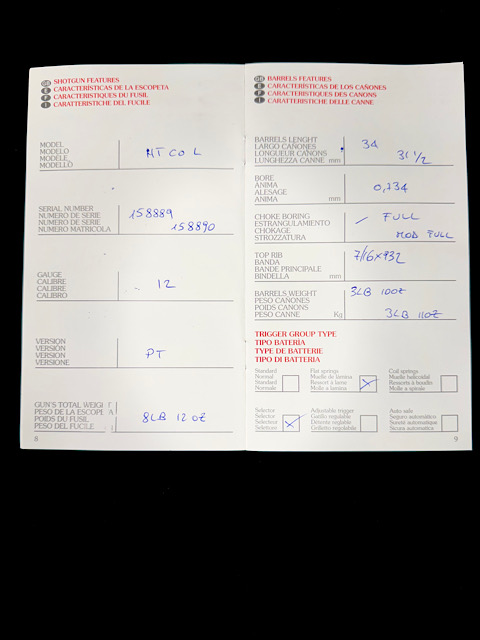 GB SHOTGUN FEATURES
E CARACTERÍSTICAS DE LA ESCOPETA
F CARACTERISTIQUES DU FUSIL
I CARATTERISTICHE DEL FUCILE
MODEL
MODELO
MODÈLE
MODELLO
MT CO L
SERIAL NUMBER
NUMERO DE SERIE
NUMERO DE SERIE
NUMERO MATRICOLA
158889
158890
GAUGE
CALIBRE
CALIBRE
CALIBRO
12
VERSION
VERSIÓN
VERSION
VERSIONE
PT
GUN'S TOTAL WEIGHT
PESO DE LA ESCOPETA
POIDS DU FUSIL
PESO DEL FUCILE
8LB 12 OZ
8
GB BARRELS FEATURES
E CARACTERÍSTICAS DE LOS CAÑONES
F CARACTERISTIQUES DES CANONS
I CARATTERISTICHE DELLE CANNE
BARRELS LENGHT
LARGO CAÑONES
LONGUEUR CANONS
LUNGHEZZA CANNE mm
34
31 1/2
BORE
ÁNIMA
ALESAGE
ANIMA mm
0,734
CHOKE BORING
ESTRANGULAMIENTO
CHOKAGE
STROZZATURA
FULL
MOD FULL
TOP RIB
BANDA
BANDE PRINCIPALE
BINDELLA mm
BARRELS WEIGHT
PESO CAÑONES
POIDS CANONS
PESO CANNE Kg
3LB 10OZ
3LB 11OZ
TRIGGER GROUP TYPE
TIPO BATERÍA
TYPE DE BATTERIE
TIPO DI BATTERIA
Standard
Normal
Standard
Normale
Flat springs
Muelle de lamina
Ressort a lame
Molle a lamina
Coil springs
Muelle helicoidal
Ressorts à boudin
Molle a spirale
Selector
Selector
Sélecteur
Selettore
Adjustable trigger
Gatillo regulable
Détente réglable
Grilletto regolabile
Auto safe
Seguro automatico
Sureté automatique
Sicura automatica
9